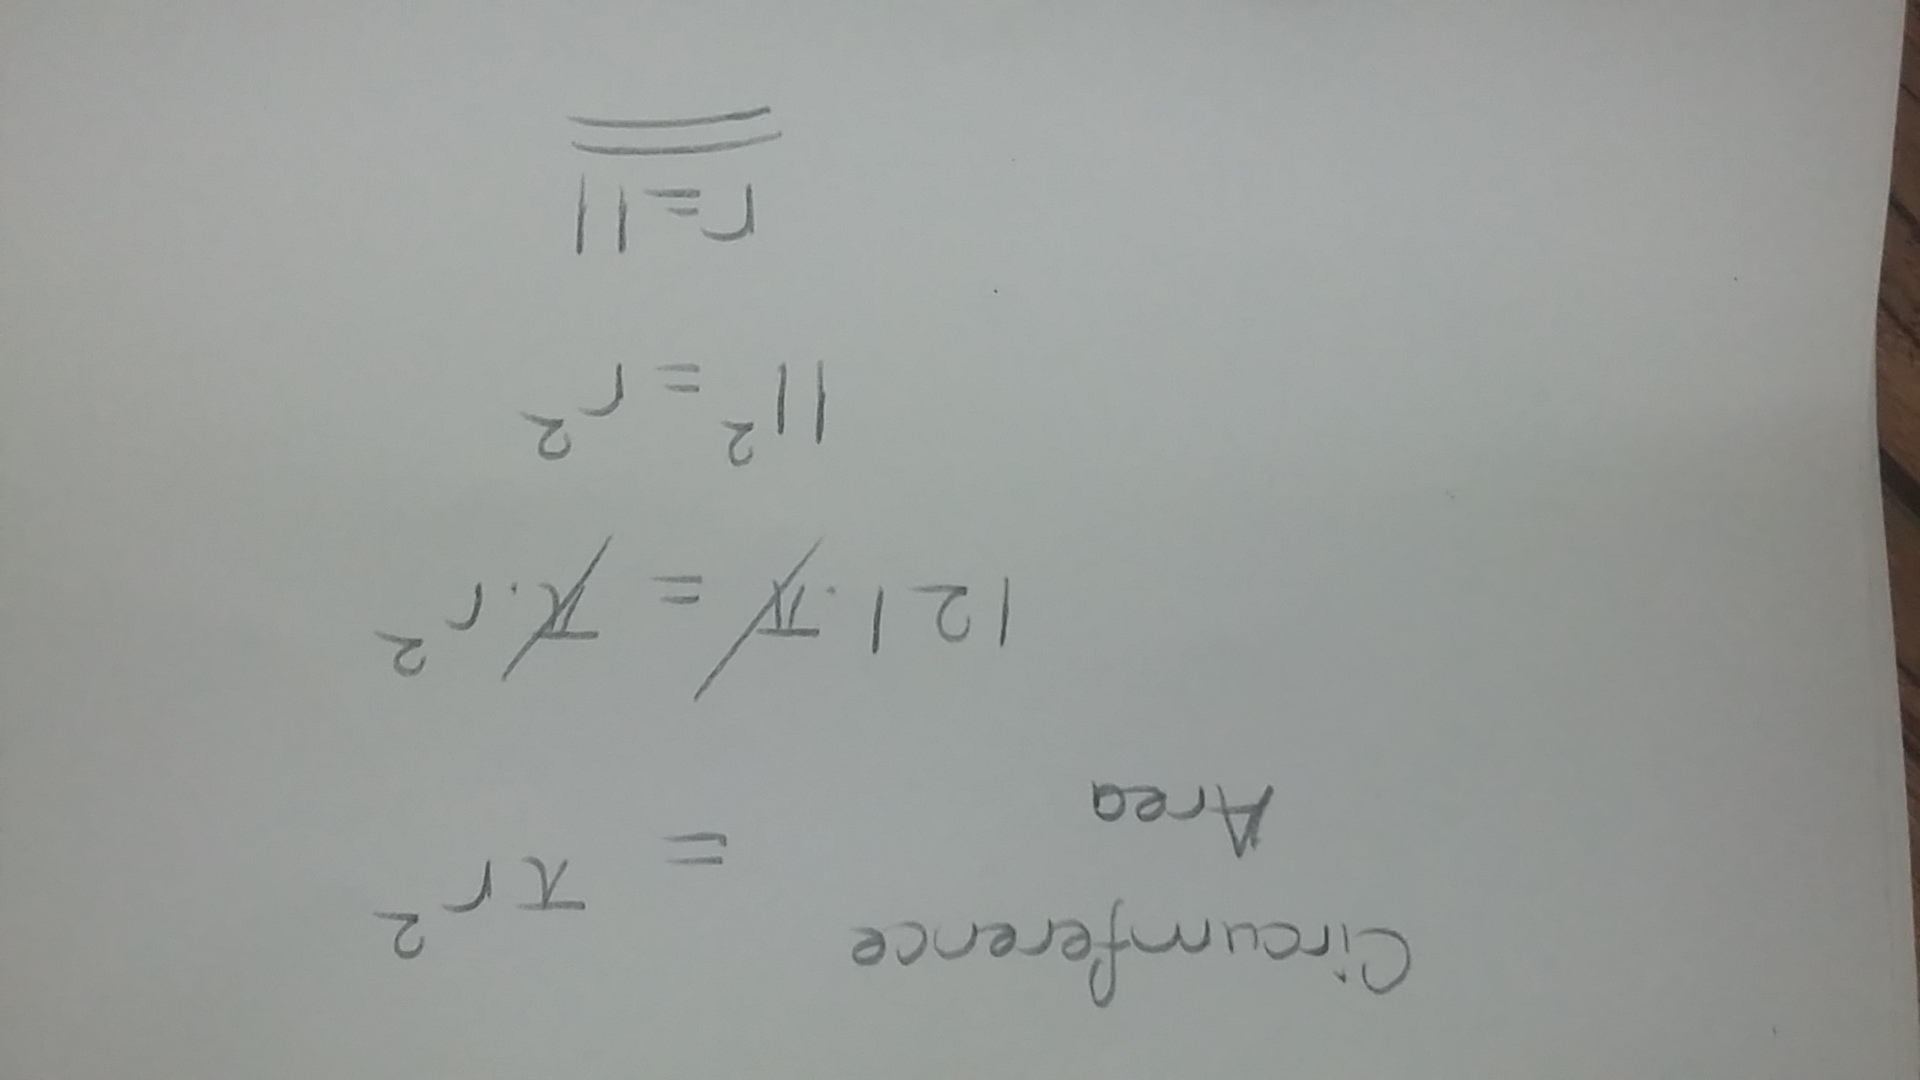 Circumference
Area = πr²
121.π = π.r²
11² = r²
r=11